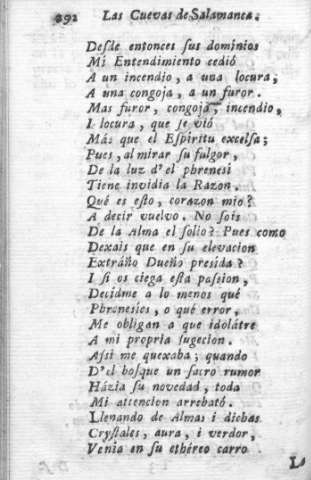 292 Las Cuevas de Salamanca.
Desde entonces sus dominios
Mi Entendimiento cedió
A un incendio, a una locura,
A una congoja, a un furor.
Mas furor, congoja, incendio,
I locura, que se vió
Más que el Espiritu excelsa;
Pues, al mirar su fulgor,
De la luz d'el phrenesi
Tiene invidia la Razon.
Qué es esto, corazon mio?
A decir vuelvo. No sois
De la Alma el solio? Pues como
Dexais que en su elevacion
Extráño Dueño presida?
I si os ciega esta passion,
Decidme a lo menos qué
Phrenesies, o qué error,
Me obligan a que idolátre
A mi propria sugecion.
Assi me quexaba; quando
D'el bosque un sacro rumor
Házia su novedad, toda
Mi attencion arrebató.
Llenando de Almas i dichas
Crystales, aura, i verdor,
Venia en su ethéreo carro
La